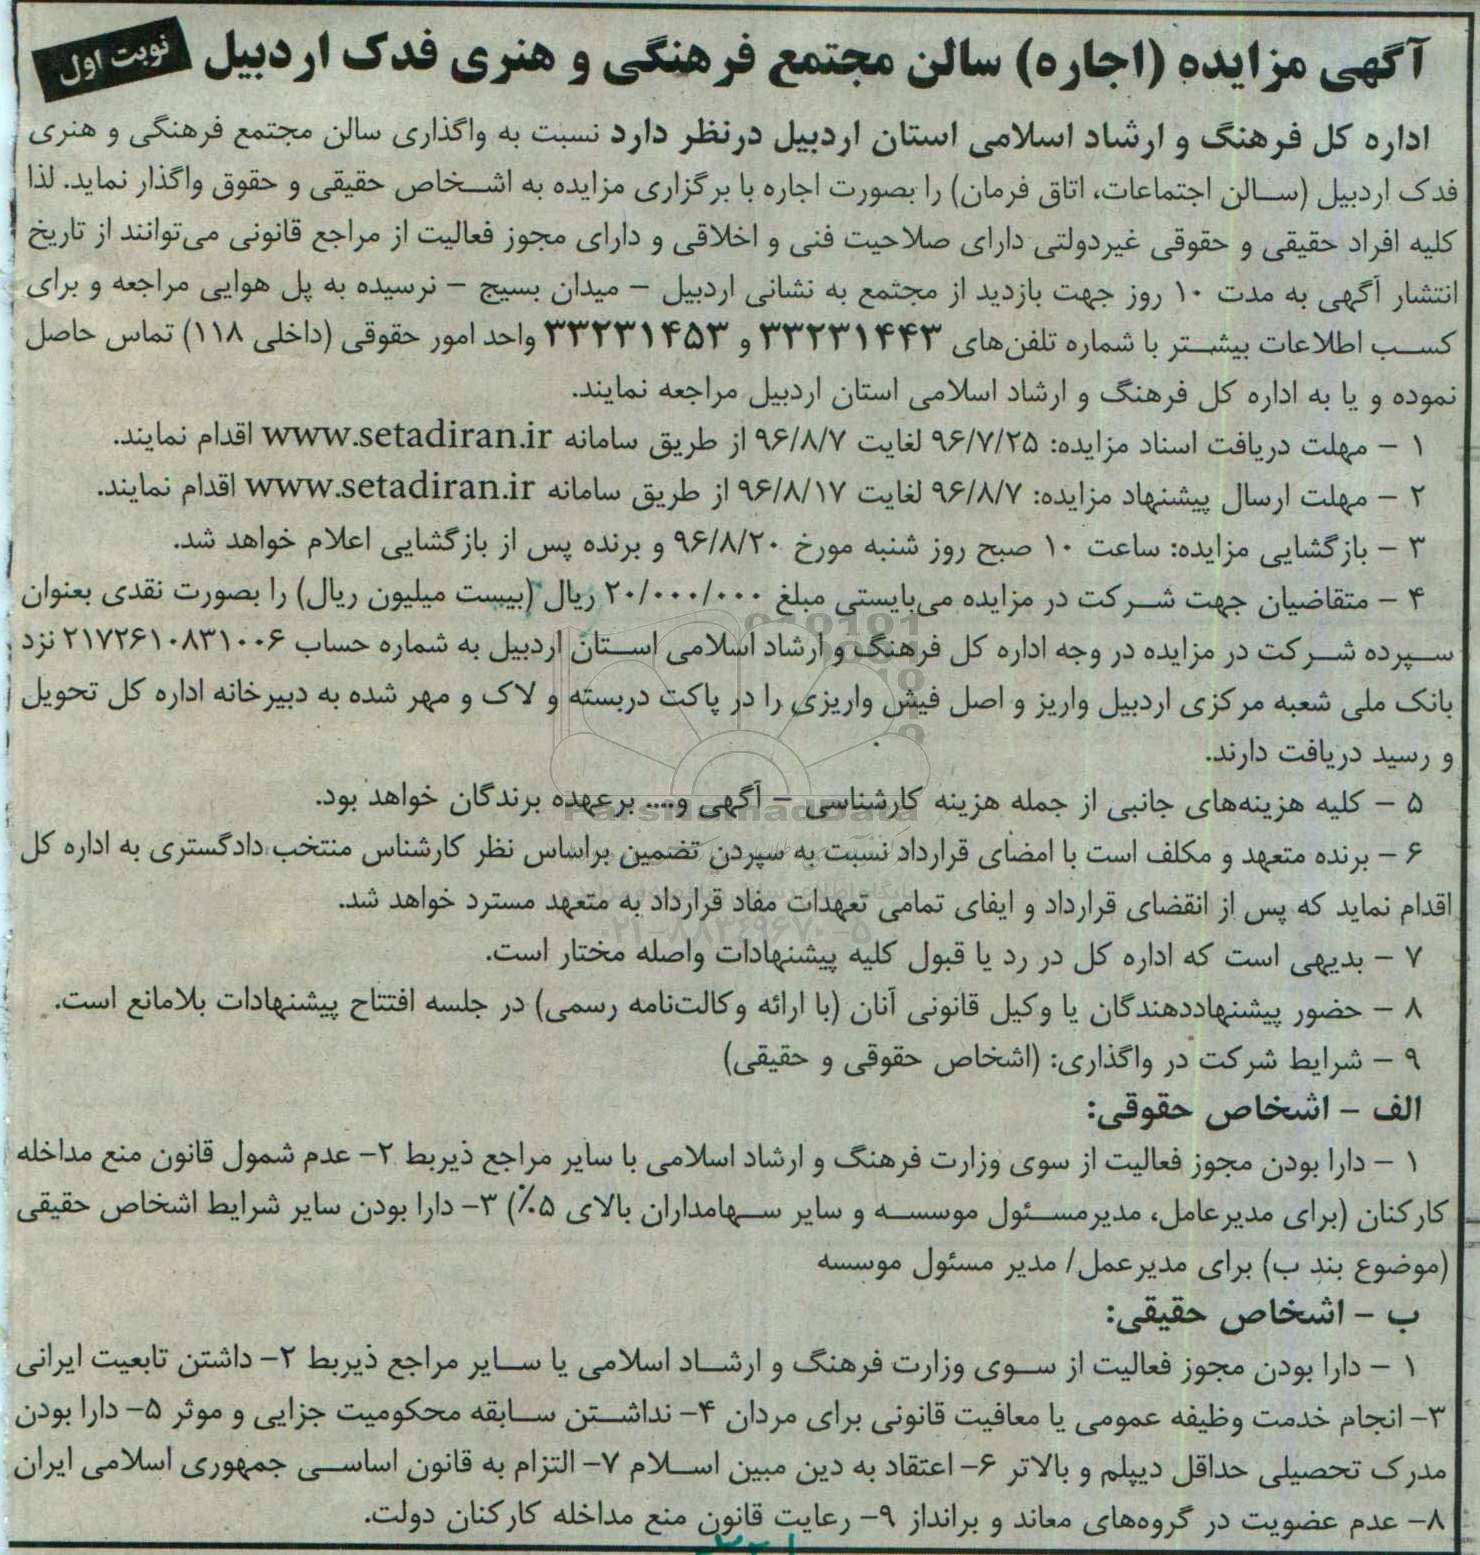 آگهی مزایده (اجاره) سالن مجتمع فرهنگی و هنری فدک اردبیل
نوبت اول
اداره کل فرهنگ و ارشاد اسلامی استان اردبیل درنظر دارد نسبت به واگذاری سالن مجتمع فرهنگی و هنری
فدک اردبیل (سالن اجتماعات، اتاق فرمان) را بصورت اجاره با برگزاری مزایده به اشخاص حقیقی و حقوق واگذار نماید. لذا
کلیه افراد حقیقی و حقوقی غیردولتی دارای صلاحیت فنی و اخلاقی و دارای مجوز فعالیت از مراجع قانونی می‌توانند از تاریخ
انتشار آگهی به مدت ۱۰ روز جهت بازدید از مجتمع به نشانی اردبیل – میدان بسیج – نرسیده به پل هوایی مراجعه و برای
کسب اطلاعات بیشتر با شماره تلفن‌های ۳۳۲۳۱۴۴۳ و ۳۳۲۳۱۴۵۳ واحد امور حقوقی (داخلی ۱۱۸) تماس حاصل
نموده و یا به اداره کل فرهنگ و ارشاد اسلامی استان اردبیل مراجعه نمایند.
۱ – مهلت دریافت اسناد مزایده: ۹۶/۷/۲۵ لغایت ۹۶/۸/۷ از طریق سامانه www.setadiran.ir اقدام نمایند.
۲ – مهلت ارسال پیشنهاد مزایده: ۹۶/۸/۷ لغایت ۹۶/۸/۱۷ از طریق سامانه www.setadiran.ir اقدام نمایند.
۳ – بازگشایی مزایده: ساعت ۱۰ صبح روز شنبه مورخ ۹۶/۸/۲۰ و برنده پس از بازگشایی اعلام خواهد شد.
۴ – متقاضیان جهت شرکت در مزایده می‌بایستی مبلغ ۲۰/۰۰۰/۰۰۰ ریال (بیست میلیون ریال) را بصورت نقدی بعنوان
سپرده شرکت در مزایده در وجه اداره کل فرهنگ و ارشاد اسلامی استان اردبیل به شماره حساب ۲۱۷۲۶۱۰۸۳۱۰۰۶ نزد
بانک ملی شعبه مرکزی اردبیل واریز و اصل فیش واریزی را در پاکت دربسته و لاک و مهر شده به دبیرخانه اداره کل تحویل
و رسید دریافت دارند.
۵ – کلیه هزینه‌های جانبی از جمله هزینه کارشناسی – آگهی و.... برعهده برندگان خواهد بود.
۶ – برنده متعهد و مکلف است با امضای قرارداد نسبت به سپردن تضمین براساس نظر کارشناس منتخب دادگستری به اداره کل
اقدام نماید که پس از انقضای قرارداد و ایفای تمامی تعهدات مفاد قرارداد به متعهد مسترد خواهد شد.
۷ – بدیهی است که اداره کل در رد یا قبول کلیه پیشنهادات واصله مختار است.
۸ – حضور پیشنهاددهندگان یا وکیل قانونی آنان (با ارائه وکالت‌نامه رسمی) در جلسه افتتاح پیشنهادات بلامانع است.
۹ – شرایط شرکت در واگذاری: (اشخاص حقوقی و حقیقی)
الف – اشخاص حقوقی:
۱ – دارا بودن مجوز فعالیت از سوی وزارت فرهنگ و ارشاد اسلامی با سایر مراجع ذیربط ۲– عدم شمول قانون منع مداخله
کارکنان (برای مدیرعامل، مدیرمسئول موسسه و سایر سهامداران بالای ۵٪) ۳– دارا بودن سایر شرایط اشخاص حقیقی
(موضوع بند ب) برای مدیرعمل/ مدیر مسئول موسسه
ب – اشخاص حقیقی:
۱ – دارا بودن مجوز فعالیت از سوی وزارت فرهنگ و ارشاد اسلامی یا سایر مراجع ذیربط ۲– داشتن تابعیت ایرانی
۳– انجام خدمت وظیفه عمومی یا معافیت قانونی برای مردان ۴– نداشتن سابقه محکومیت جزایی و موثر ۵– دارا بودن
مدرک تحصیلی حداقل دیپلم و بالاتر ۶– اعتقاد به دین مبین اسلام ۷– التزام به قانون اساسی جمهوری اسلامی ایران
۸– عدم عضویت در گروه‌های معاند و برانداز ۹– رعایت قانون منع مداخله کارکنان دولت.